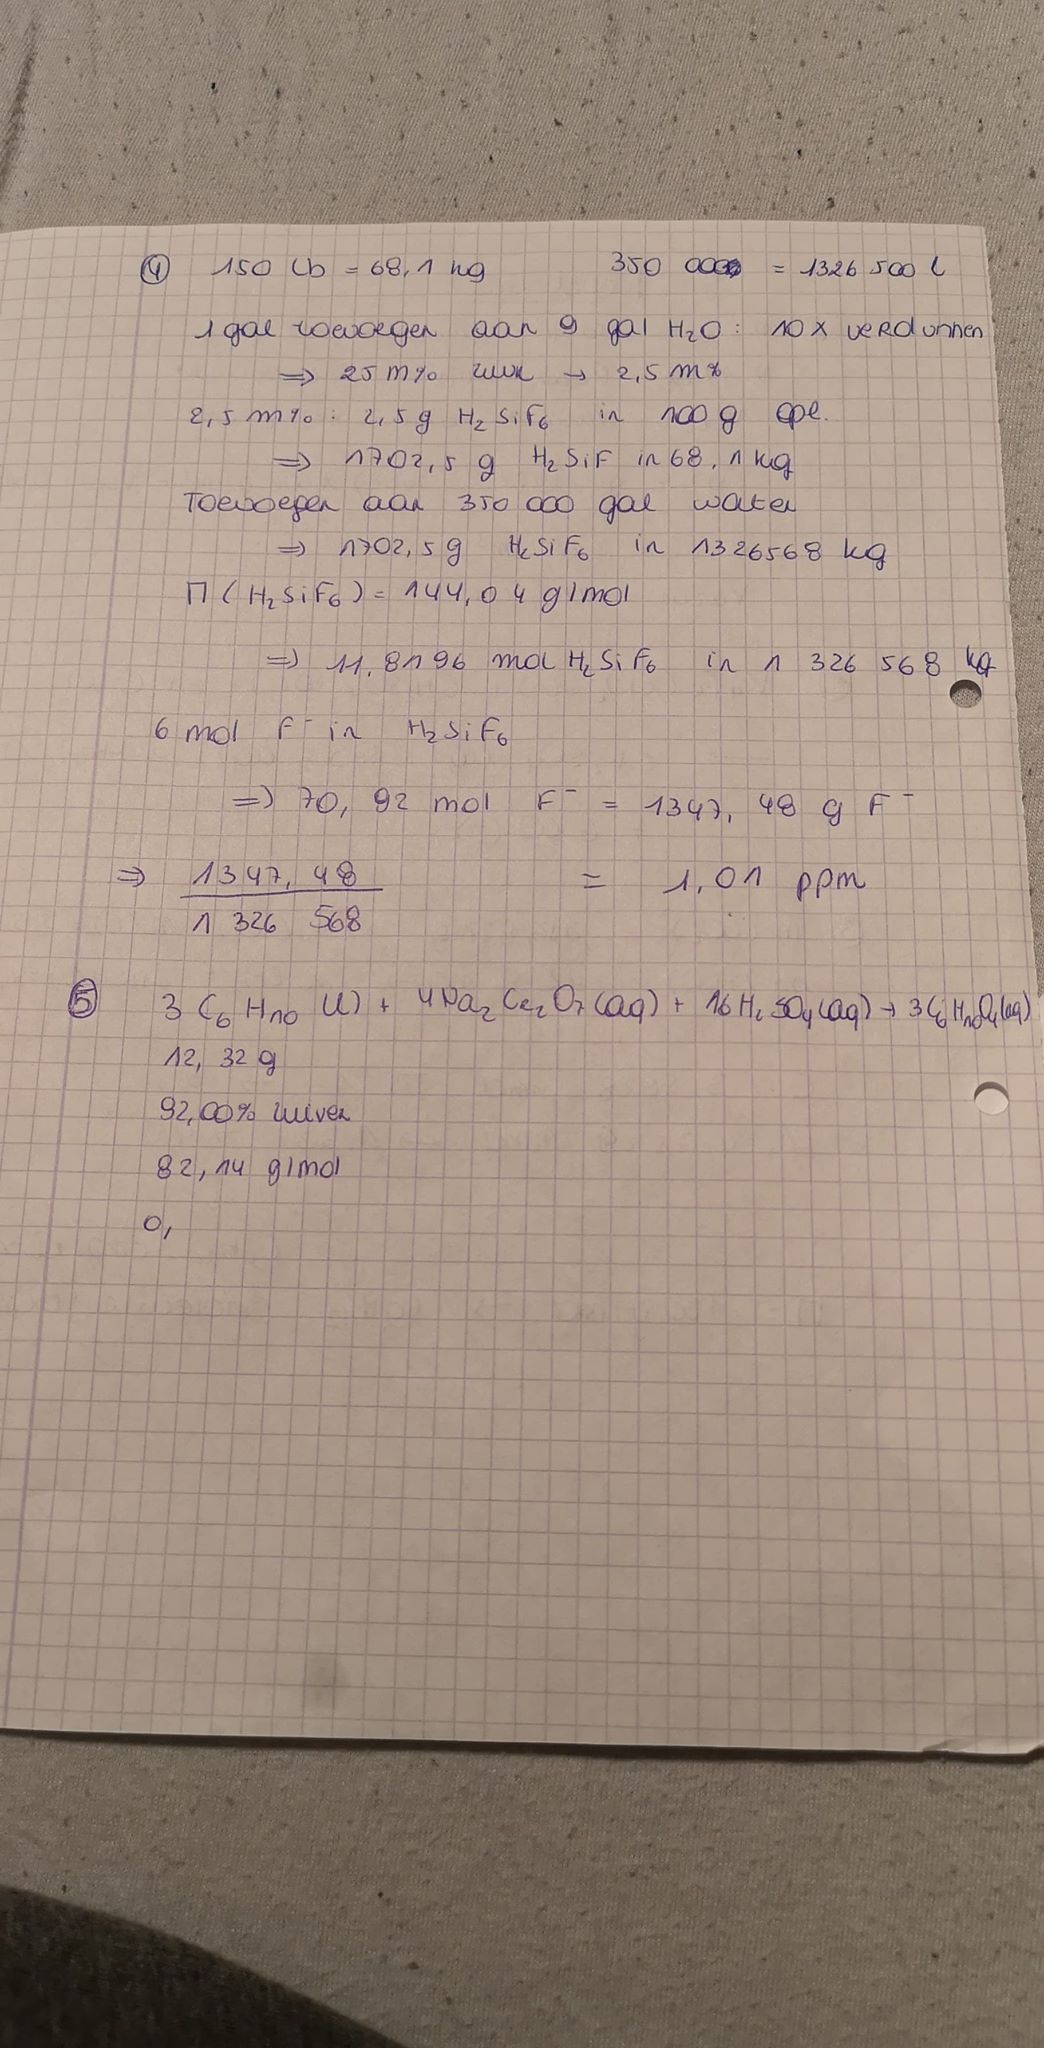 ④ 150 lb = 68,1 kg 350 000 = 1326 500 l
1 gal toevoegen aan 9 gal H₂O : 10 x verdunnen
⇒ 25 m% zuur → 2,5 m%
2,5 m% : 2,5 g H₂SiF₆ in 100 g opl.
⇒ 1702,5 g H₂SiF in 68,1 kg
Toevoegen aan 350 000 gal water
⇒ 1702,5 g H₂SiF₆ in 1326568 kg
M (H₂SiF₆) = 144,04 g/mol
⇒ 11,8196 mol H₂SiF₆ in 1 326 568 kg
6 mol F⁻ in H₂SiF₆
⇒ 70,92 mol F⁻ = 1347,48 g F⁻
⇒ 1347,48 / 1 326 568 = 1,01 ppm
⑤ 3 C₆H₁₀ (l) + 4 Na₂Cr₂O₇ (aq) + 16 H₂SO₄ (aq) → 3 C₆H₁₀O₄ (aq)
12,32 g
92,00% zuiver
82,14 g/mol
0,